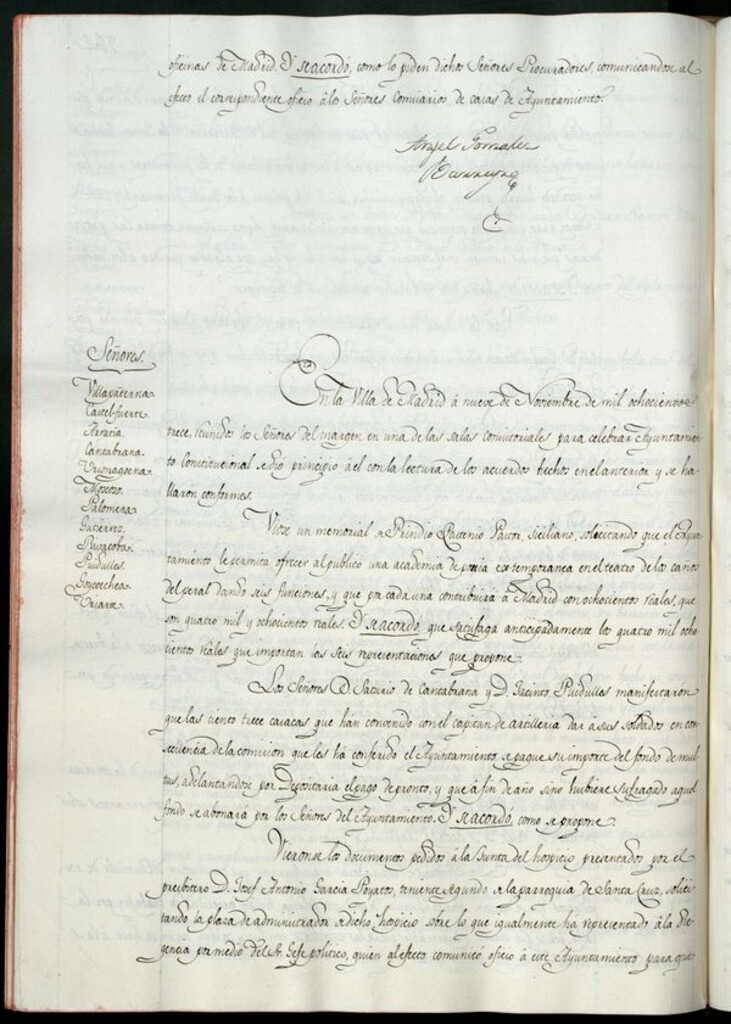 oficinas de Madrid. Y se acordó, como lo piden dichos Señores Procuradores, comunicandose al
efecto el correspondiente oficio á los Señores Comisarios de casas de Ayuntamiento.
Angel Gonzalez
Barreyro
Señores.
Villapaterna
Castel-fuerte
Arratia
Cantabrana.
Urionagoena
Moscoso.
Palomera
Gutierrez
Ruigacoba.
Puidulles.
Goycoechea
Uriarte
En la Villa de Madrid á nueve de Noviembre de mil ochocientos
trece, reunidos los Señores del margen en una de las salas consistoriales para celebrar Ayuntamien-
to Constitucional se dió principio á el con la lectura de los acuerdos hechos en el anterior y se ha-
llaron conformes.
Viose un memorial de Prindio Pastor, Siciliano, solicitando que el Ayun-
tamiento le permita ofrecer al publico una academia de poesia extemporanea en el teatro de los caños
del peral dando seis funciones, y que por cada una contribuirá á Madrid con ochocientos reales, que
son quatro mil y ochocientos reales. Y se acordó, que satisfaga anticipadamente los quatro mil ocho-
cientos reales que importan las seis representaciones que propone.
Los Señores D. Saturio de Cantabrana y D. Jacinto Puidulles manifestaron
que las ciento trece casacas que han convenido con el capitan de artilleria dar á sus soldados en con-
secuencia de la comision que les há conferido el Ayuntamiento se pague su importe del fondo de mul-
tas, adelantandose por Depositaria el pago de pronto, y que á fin de año sino hubiere sufragado aquel
fondo se abonará por los Señores del Ayuntamiento. Y se acordó, como se propone.
Vieronse los documentos pedidos á la Junta del hospicio presentados por el
presbitero D. Josef Antonio Garcia Poyatos, teniente segundo de la parroquia de Santa Cruz, solici-
tando la plaza de administrador de dicho hospicio sobre lo que igualmente há representado á la Re-
gencia por medio del Sr. Gefe politico, quien al efecto comunicó oficio á este Ayuntamiento para que